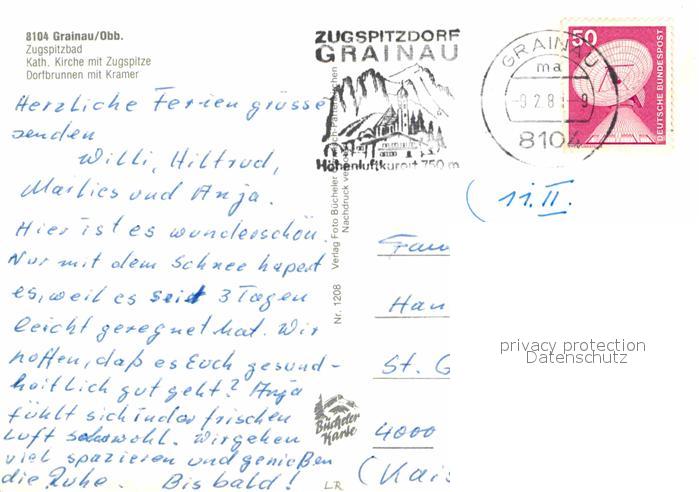 8104 Grainau/Obb.
Zugspitzbad
Kath. Kirche mit Zugspitze
Dorfbrunnen mit Kramer
ZUGSPITZDORF
GRAINAU
Höhenluftkurort 750 m
GRAINAU
ma
-9.2.8 -9
8104
50
DEUTSCHE BUNDESPOST
Herzliche Feriengrüsse
senden
Willi, Hiltrud,
Mailies und Anja.
Hier ist es wunderschön.
Nur mit dem Schnee hapert
es, weil es seit 3 Tagen
leicht geregnet hat. Wir
hoffen, daß es Euch gesund-
heitlich gut geht? Anja
fühlt sich in der frischen
Luft sauwohl. Wir gehen
viel spazieren und genießen
die Ruhe. Bis bald!
Nr. 1208 Verlag Foto Bücheler
Nachdruck
Bücheler
Karte
LR
(11.II.
Frau
Han
St. G
4000
(Kais
privacy protection
Datenschutz